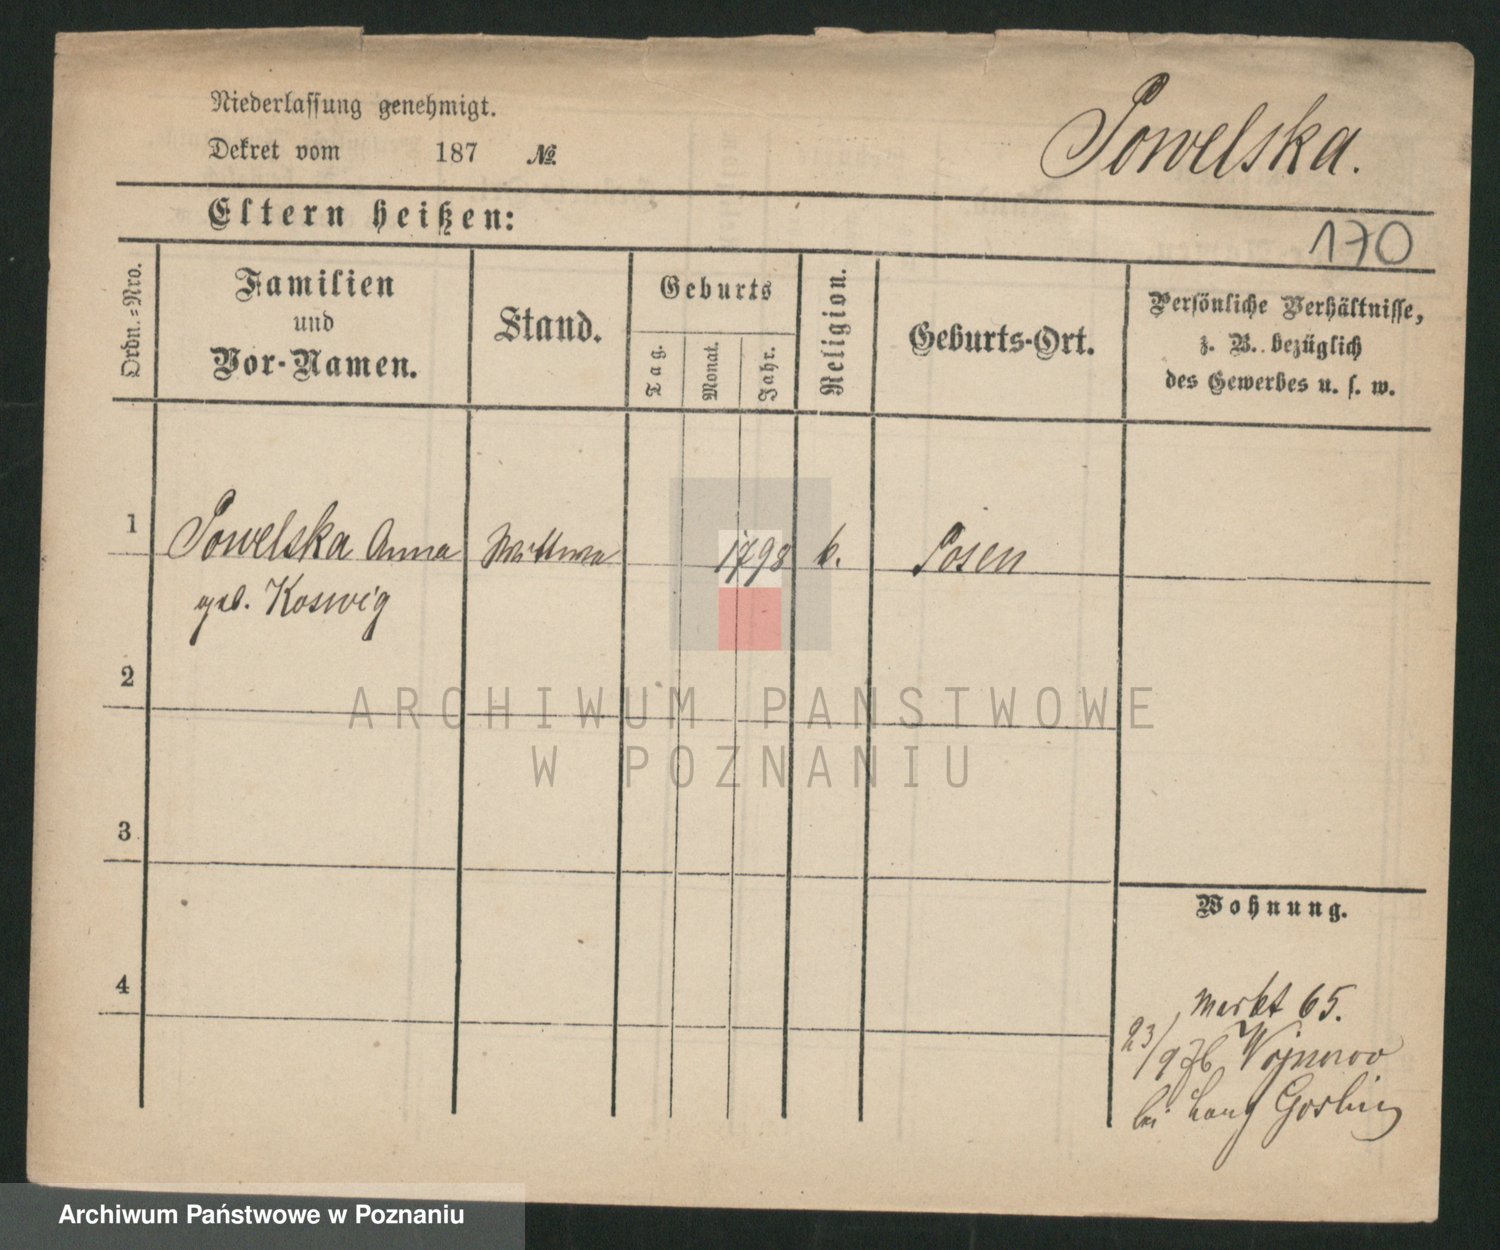 Niederlassung genehmigt.
Dekret vom 187 №
Powelska.
Eltern heißen:
170
Ordn.=Nro.
Familien
und
Vor-Namen.
Stand.
Geburts
Tag.
Monat.
Jahr.
Religion.
Geburts-Ort.
Persönliche Verhältnisse,
z. B. bezüglich
des Gewerbes u. s. w.
1 Powelska Anna Wittwe 1798 k. Posen
geb. Koswig
2
ARCHIWUM PAŃSTWOWE
W POZNANIU
3
4
Wohnung.
Markt 65.
23/9 76
bei Goslin
Archiwum Państwowe w Poznaniu